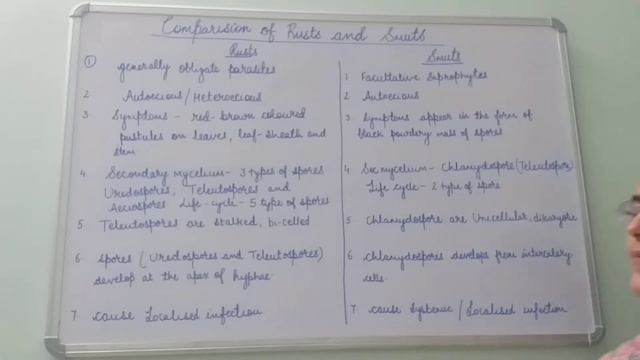 Comparision of Rusts and Smuts
Rusts
1 generally obligate parasites
2 Autoecious/Heteroecious
3 Symptoms - red brown coloured
pustules on leaves, leaf-sheath and
stem
4 Secondary mycelium - 3 types of spores
Uredospores, Teleutospores and
Aeciospores Life-cycle - 5 type of spores
5 Teleutospores are stalked, bi-celled
6 Spores (Uredospores and Teleutospores)
develop at the apex of hyphae
7 cause Localised infection
Smuts
1 Facultative Saprophytes
2 Autoecious
3 Symptoms appear in the form of
black powdery mass of spores
4 Sec mycelium - Chlamydospore (Teleutospore)
Life cycle - 2 type of spore
5 Chlamydospore are Unicellular, dikaryote
6 Chlamydospores develops from intercalary
cells
7 cause Systemic / Localised infection